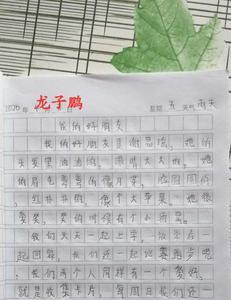 2020年 星期五 天气雨天
龙子鹏
我的好朋友
我的好朋友是谢昂燃，她的
头发黑油油的，眼睛大大的，她
的眉毛弯弯的像月芽，脸圆圆的
，红扑扑的，像个大苹果，她很
爱笑，笑的时候有个小酒窝。
我们天天一起上学，放学后一
起回家，我们还一起比赛跑步呢
。我们两个人同样有一个爱好，
就是收集卡片，每周日我们还一